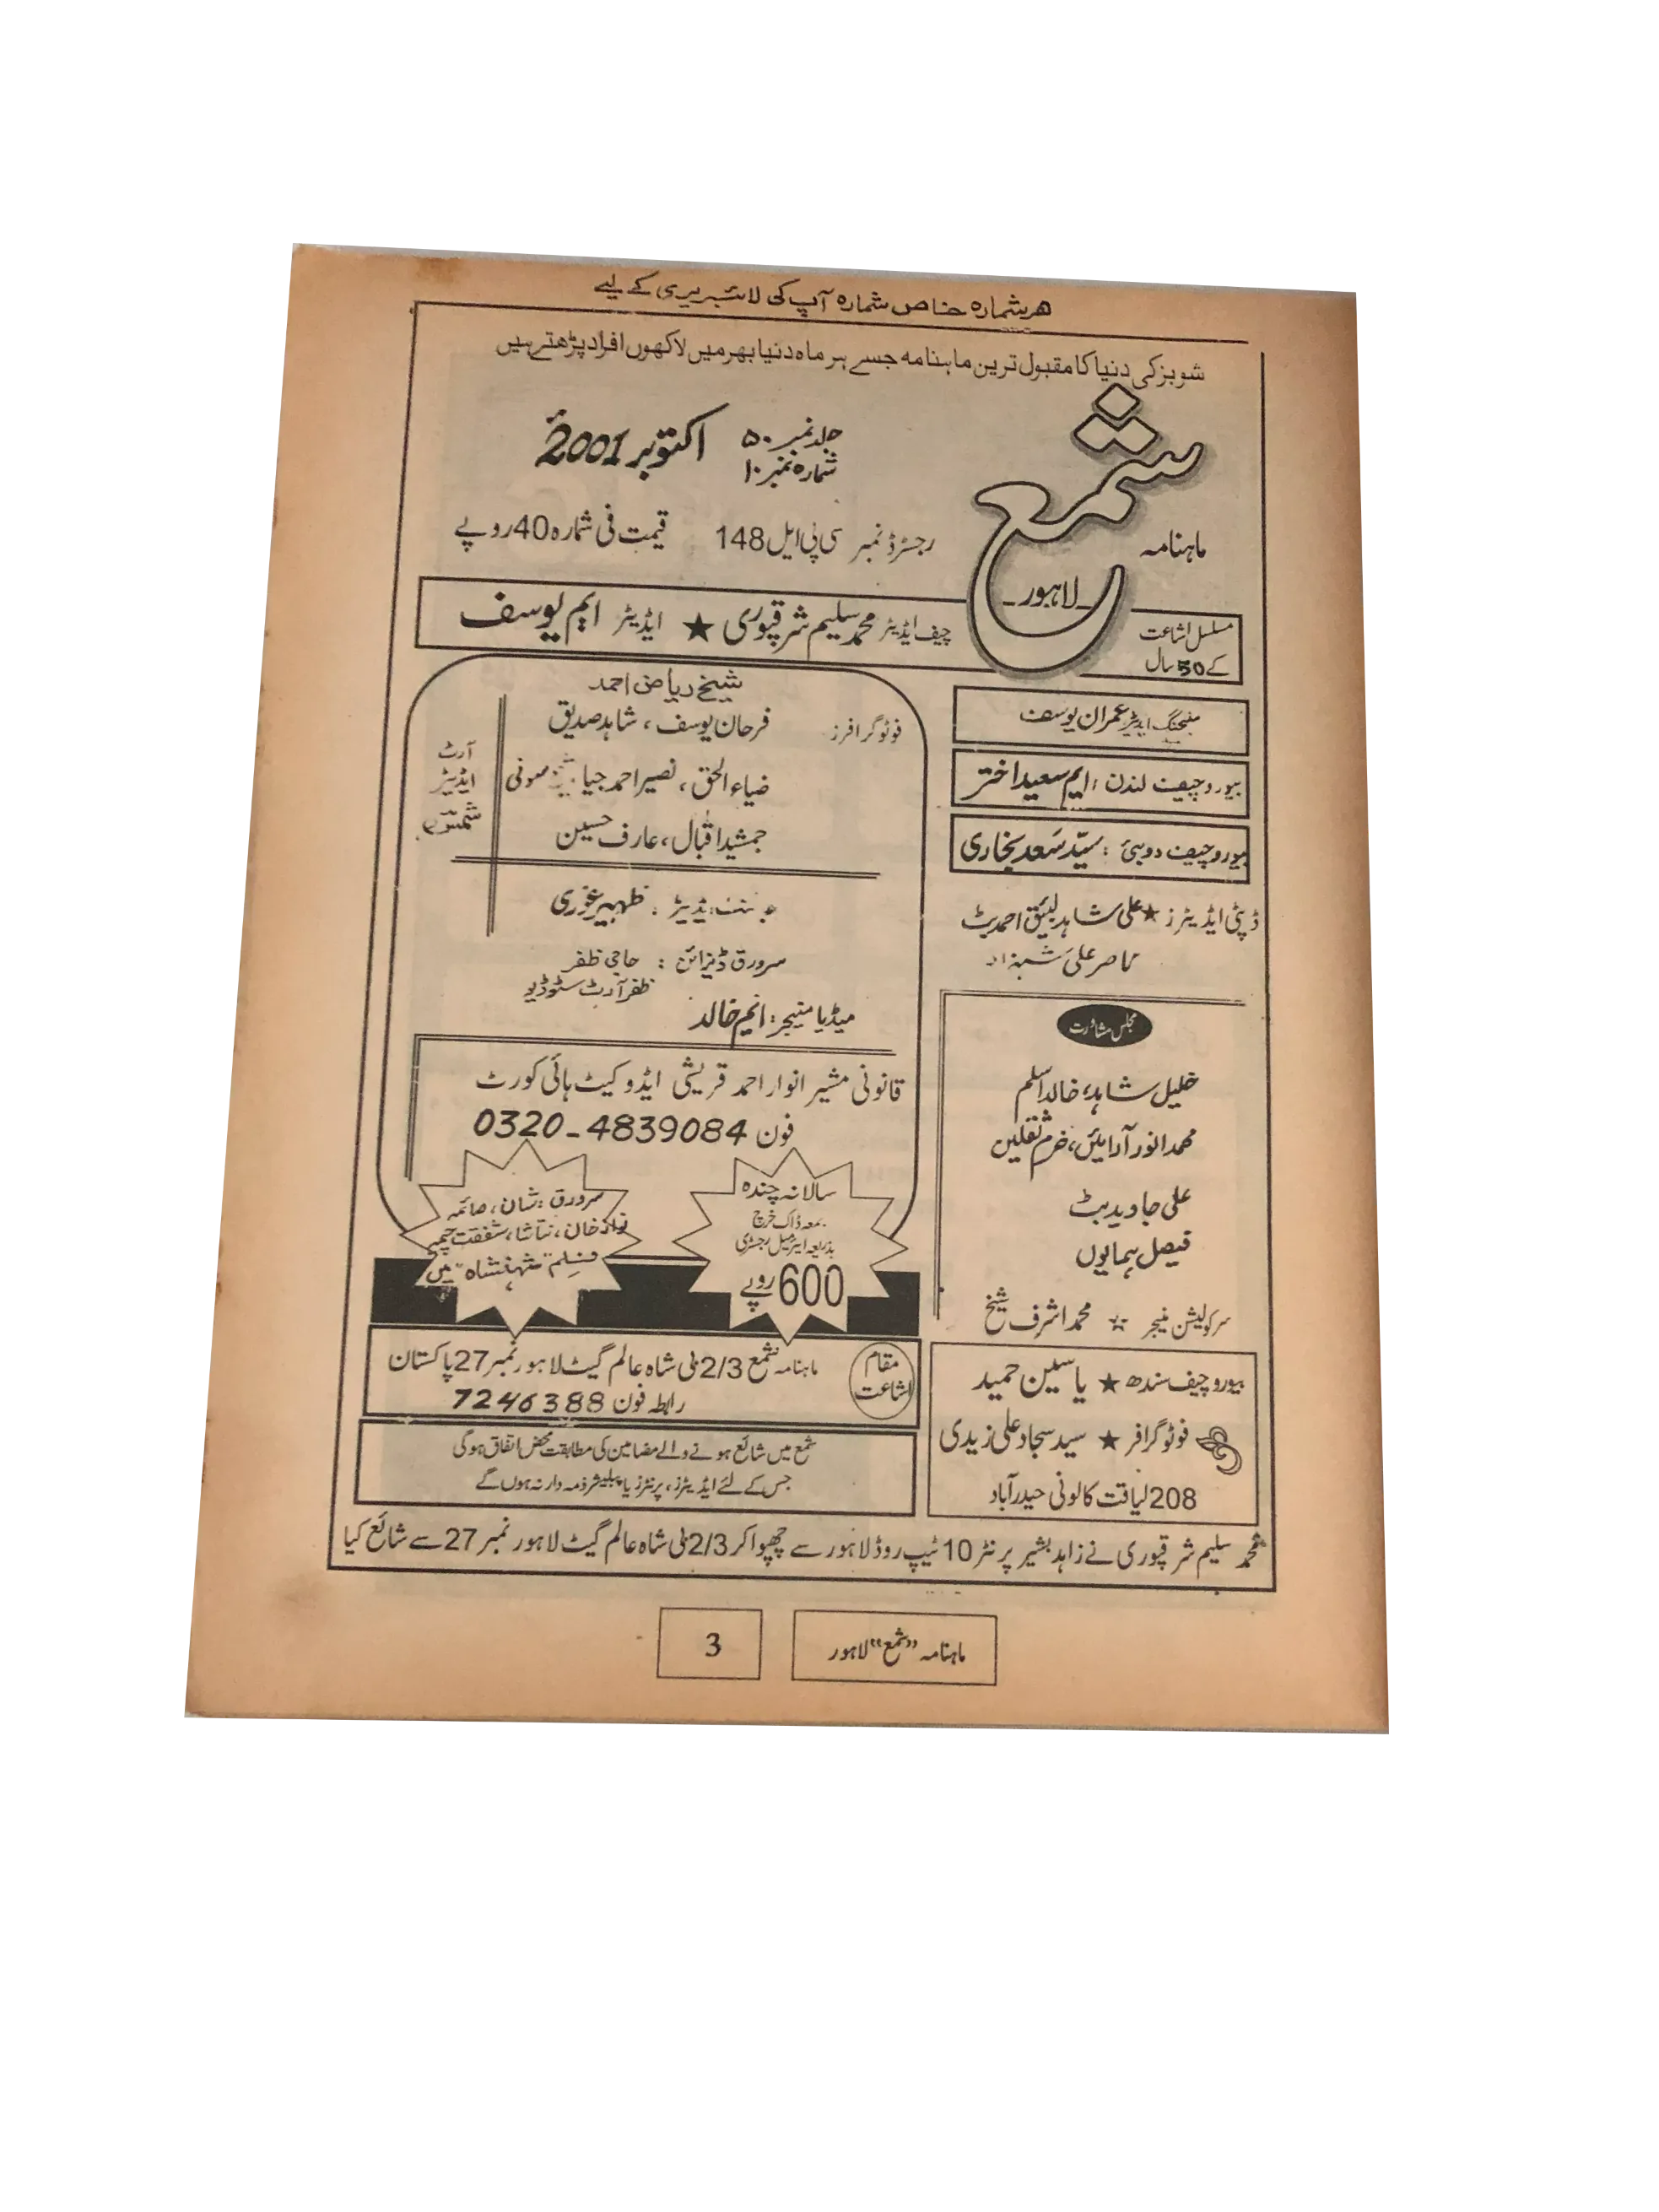 هر شماره خاص شماره آپ کی لائبریری کے لیے
شوبز کی دنیا کا مقبول ترین ماہنامہ جسے ہر ماہ دنیا بھر میں لاکھوں افراد پڑھتے ہیں
ماہنامہ
شمع
لاہور
جلد نمبر ۵۰
شمارہ نمبر ۱۰
اکتوبر 2001ء
رجسٹرڈ نمبر سی پی ایل 148
قیمت فی شمارہ 40 روپے
مسلسل اشاعت
کے 50 سال
چیف ایڈیٹر محمد سلیم شرقپوری ★ ایڈیٹر ایم یوسف
منیجنگ ایڈیٹر عمران یوسف
بیورو چیف لندن : ایم سعید اختر
بیورو چیف دوبئی : سیّد سَعد بخاری
ڈپٹی ایڈیٹرز ★ علی شاہد لئیق احمد بٹ
ناصر علی شہزاد
مجلس مشاورت
خلیل شاہد، خالد اسلم
محمد انور آرائیں، خرم ثقلین
علی جاوید بٹ
فیصل ہمایوں
سرکولیشن منیجر ☆ محمد اشرف شیخ
بیورو چیف سندھ ★ یاسین حمید
فوٹو گرافر ★ سید سجاد علی زیدی
208 لیاقت کالونی حیدرآباد
شیخ ریاض احمد
فوٹو گرافرز
فرحان یوسف ، شاہد صدیق
ضیاء الحق ، نصیر احمد جیا سونی
جمشید اقبال ، عارف حسین
آرٹ
ایڈیٹر
شمسی
ظہیر غوری
سرورق ڈیزائن : حاجی ظفر
ظفر آرٹ سٹوڈیو
میڈیا منیجر : انجم خالد
قانونی مشیر انوار احمد قریشی ایڈوکیٹ ہائی کورٹ
فون 0320-4839084
سالانہ چندہ
بمعہ ڈاک خرچ
بذریعہ ایئر میل رجسٹری
600 روپے
سرورق : شان ، صائمہ
نواز خان ، نتاشا ، شفقت چیمہ
فلم "شہنشاہ" میں
مقام
اشاعت
ماہنامہ شمع 2/3 ملی شاہ عالم گیٹ لاہور نمبر 27 پاکستان
رابطہ فون 7246388
شمع میں شائع ہونے والے مضامین کی مطابقت محض اتفاق ہوگی
جس کے لئے ایڈیٹرز، پرنٹرز یا پبلیشر ذمہ دار نہ ہوں گے
محمد سلیم شرقپوری نے زاہد بشیر پرنٹر 10 ٹیپ روڈ لاہور سے چھپوا کر 2/3 ملی شاہ عالم گیٹ لاہور نمبر 27 سے شائع کیا
ماہنامہ "شمع" لاہور
3